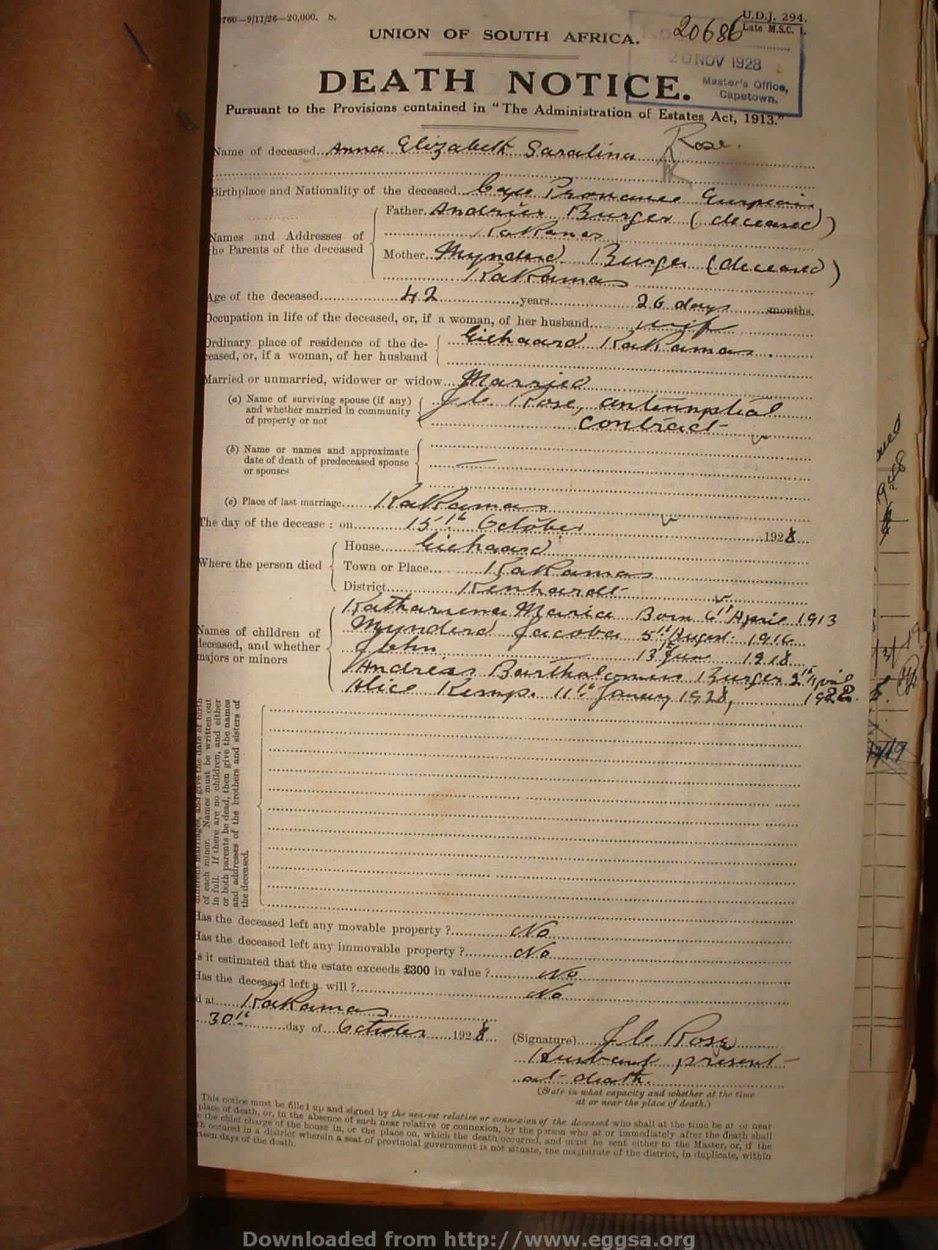 760—9/11/26—20,000. S.
U.D.J. 294.
Late M.S.C. 1.
20686
UNION OF SOUTH AFRICA.
20 NOV 1928
Master's Office,
Capetown.
DEATH NOTICE.
Pursuant to the Provisions contained in "The Administration of Estates Act, 1913."
Name of deceased Anna Elizabeth Saralina Rose.
Birthplace and Nationality of the deceased Cape
Names and Addresses of the Parents of the deceased
Father Andries Burger (deceased)
Kakamas
Mother Mynderd Burger (deceased)
Kakamas
Age of the deceased 42 years 26 days months.
Occupation in life of the deceased, or, if a woman, of her husband wife
Ordinary place of residence of the de-
ceased, or, if a woman, of her husband
Kakamas.
Married or unmarried, widower or widow Married
(a) Name of surviving spouse (if any)
and whether married in community
of property or not
Rose, antenuptial
contract
(b) Name or names and approximate
date of death of predeceased spouse
or spouses
(c) Place of last marriage Kakamas
The day of the decease: on 15th October 1928
Where the person died
House
Town or Place Kakamas
District Kenhardt
Names of children of
deceased, and whether
majors or minors
Marica Born 6th April 1913
Mynderd Jacoba 5th August 1916
John 13 June 1918
Andreas Bartholomeus Burger 1922
Alice Kemp. 11th January 1928,
different marriages, and give the date of birth
of each minor. Names must be written out
in full. If there are no children, and either
or both parents be dead, then give the names
and addresses of the brothers and sisters of
the deceased.
Has the deceased left any movable property? No
Has the deceased left any immovable property? No
Is it estimated that the estate exceeds £300 in value? No
Has the deceased left a will? No
d at Kakamas
30th day of October 1928
(Signature) Rose
Husband present
at death.
(State in what capacity and whether at the time
at or near the place of death.)
This notice must be filled up and signed by the nearest relative or connexion of the deceased who shall at the time be at or near
place of death, or, in the absence of such near relative or connexion, by the person who at or immediately after the death shall
the chief charge of the house in, or the place on, which the death occurred, and must be sent either to the Master, or, if the
th occured in a district wherein a seat of provincial government is not situate, the magistrate of the district, in duplicate, within
teen days of the death.
Downloaded from http://www.eggsa.org